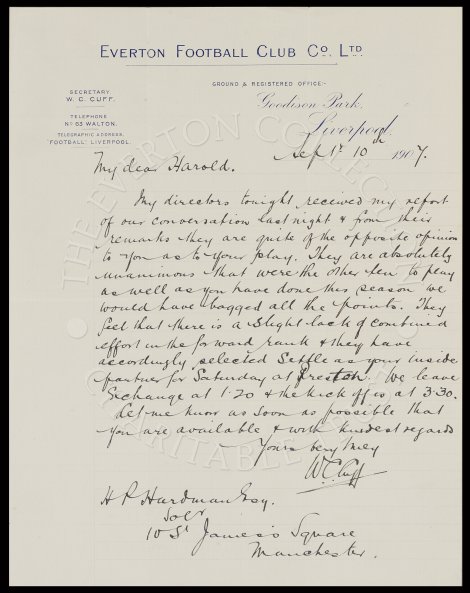 EVERTON FOOTBALL CLUB CO. LTD
SECRETARY
W. C. CUFF.
GROUND & REGISTERED OFFICE:-
TELEPHONE
NO 63 WALTON.
Goodison Park,
TELEGRAPHIC ADDRESS.
"FOOTBALL" LIVERPOOL.
Liverpool,
Sept 10th 1907.
My dear Harold.
My directors tonight received my report
of our conversation last night & from their
remarks they are quite of the opposite opinion
to you as to your play. They are absolutely
unanimous that were the other ten to play
as well as you have done this season we
would have bagged all the points. They
feel that there is a slight lack of combined
effort in the forward rank & they have
accordingly selected Settle as your inside
partner for Saturday at Preston. We leave
Exchange at 1.20 & the kick off is at 3.30.
Let me know as soon as possible that
you are available & with kindest regards
Yours very truly
W.C. Cuff
H P Hardman Esq.
Solr
10 St James's Square
Manchester.
THE EVERTON COLLECTION
CHARITABLE